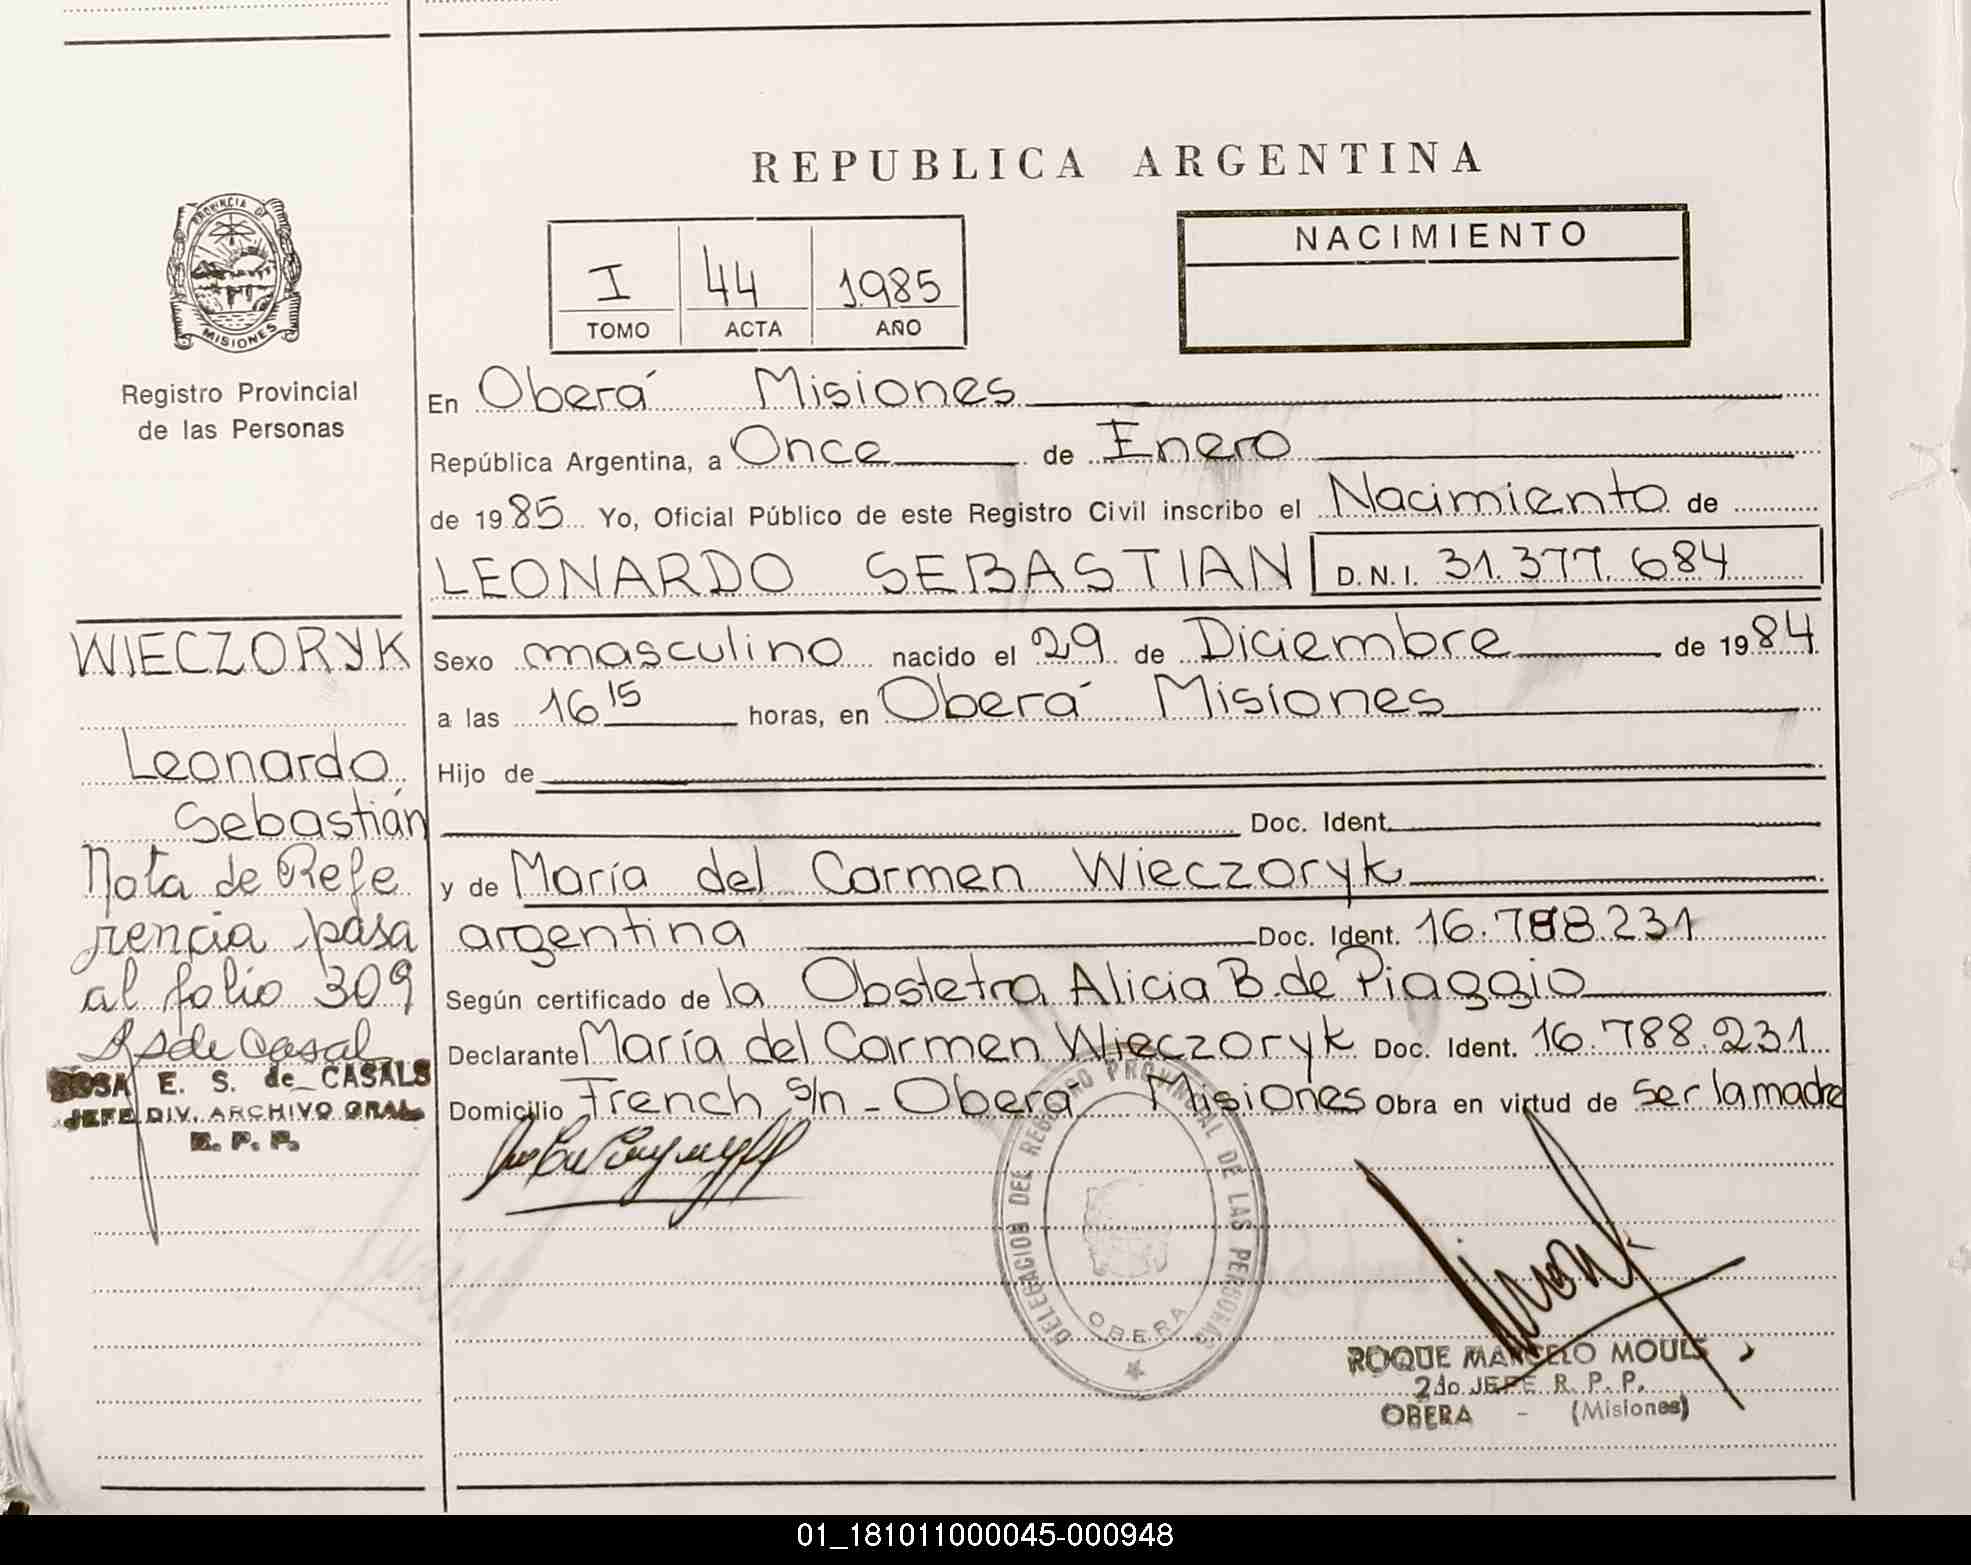 REPUBLICA ARGENTINA
PROVINCIA DE
MISIONES
Registro Provincial
de las Personas
I 44 1985
TOMO ACTA AÑO
NACIMIENTO
En Oberá Misiones
República Argentina, a Once de Enero
de 1985 Yo, Oficial Público de este Registro Civil inscribo el Nacimiento de
LEONARDO SEBASTIAN D.N.I. 31.377.684
WIECZORYK
Leonardo
Sebastián
Nota de Refe
rencia pasa
al folio 309
ROSA E. S. de CASALS
JEFE DIV. ARCHIVO GRAL
R. P. P.
Sexo masculino nacido el 29 de Diciembre de 1984
a las 16 15 horas, en Oberá Misiones
Hijo de
Doc. Ident.
y de María del Carmen Wieczoryk
argentina Doc. Ident. 16.788.231
Según certificado de la Obstetra Alicia B. de Piaggio
Declarante María del Carmen Wieczoryk Doc. Ident. 16.788.231
Domicilio French s/n - Oberá Misiones Obra en virtud de ser la madre
DELEGACION DEL REGISTRO PROVINCIAL DE LAS PERSONAS
OBERA
ROQUE MARCELO MOULS
2do JEFE R. P. P.
OBERA - (Misiones)
01_181011000045-000948